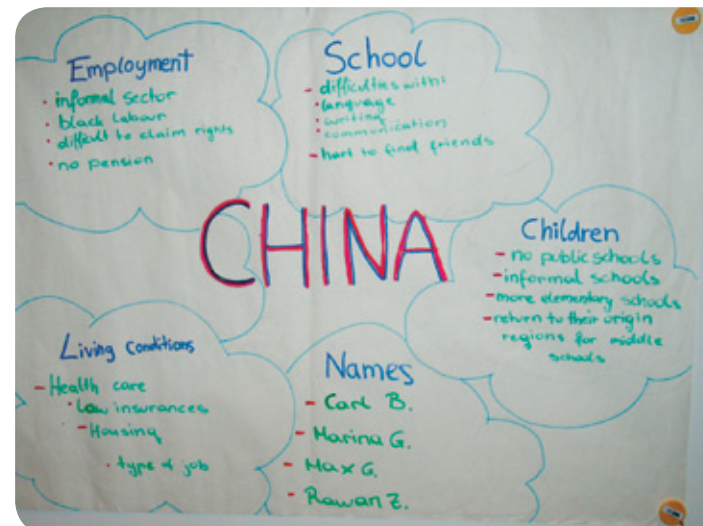 Employment
· informal sector
· black labour
· difficult to claim rights
· no pension
School
- difficulties with:
· language
· writing
· communication
- hart to find friends
CHINA
Children
- no public schools
- informal schools
- more elementary schools
- return to their origin
regions for middle
schools
Living Conditions
- Health care
· Law insurances
- Housing
· type of job
Names
- Carl B.
- Marina G.
- Max G.
- Rawan Z.